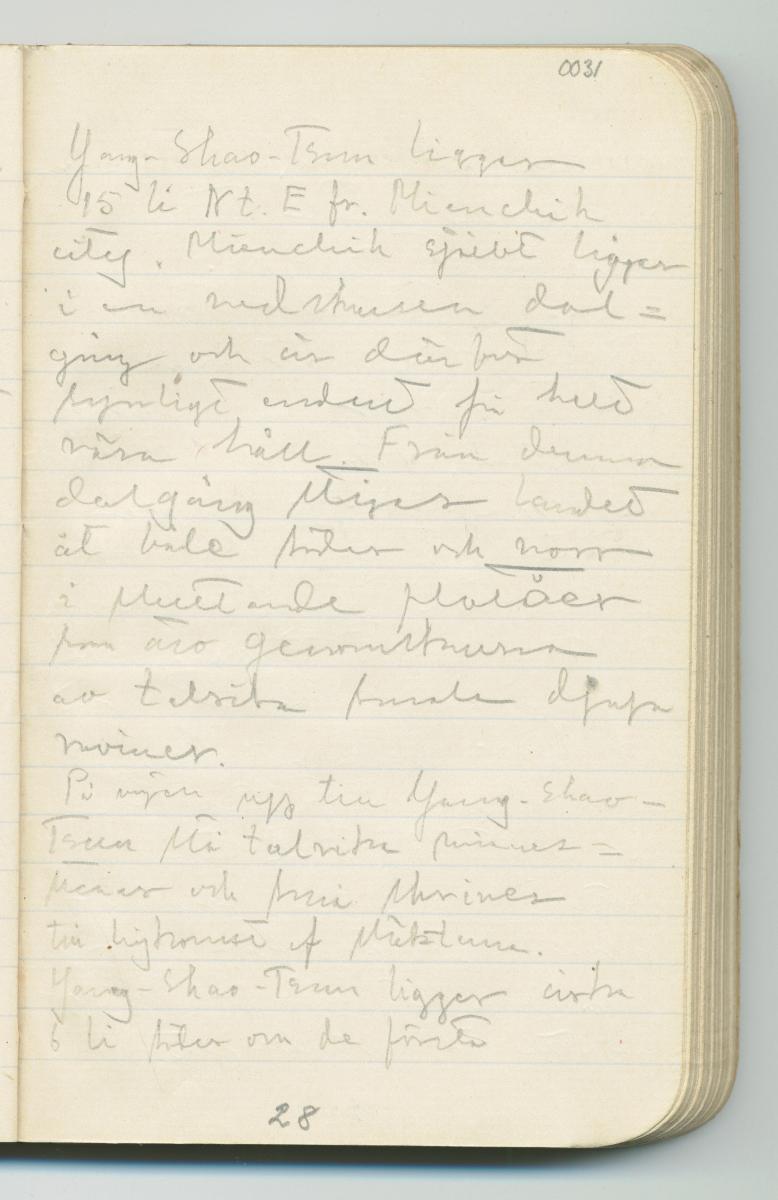 0031
Yang-Shao-Tsun ligger
15 li N t. E fr. Mienchih
city. Mienchih självt ligger
i en nedskuren dal=
gång och är därför
synligt endast på helt
nära håll. Från denna
dalgång stiger landet
åt både söder och norr
i sluttande platåer
som äro genomskurna
av talrika smala djupa
raviner.
På vägen upp till Yang-Shao-
Tsun stå talrika minnes=
stenar och små shrines
till åminnelse af släktena.
Yang-Shao-Tsun ligger cirka
6 li söder om de första
28